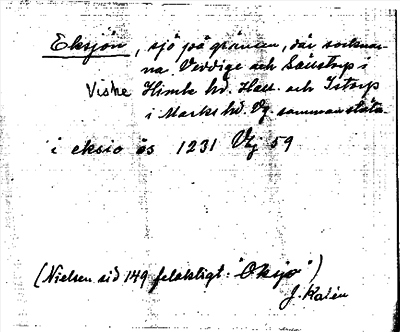 Eksjön, sjö på gränsen, där socknar-
na Veddige och Sällstorp i
Viske Himle hd. Hall. och Istorp
i Marks hd. Vg. sammanstöta.
i eksio ös 1231 Vj 59
(Nielsen sid 149 felaktigt: "Oksjo")
J. Kalén